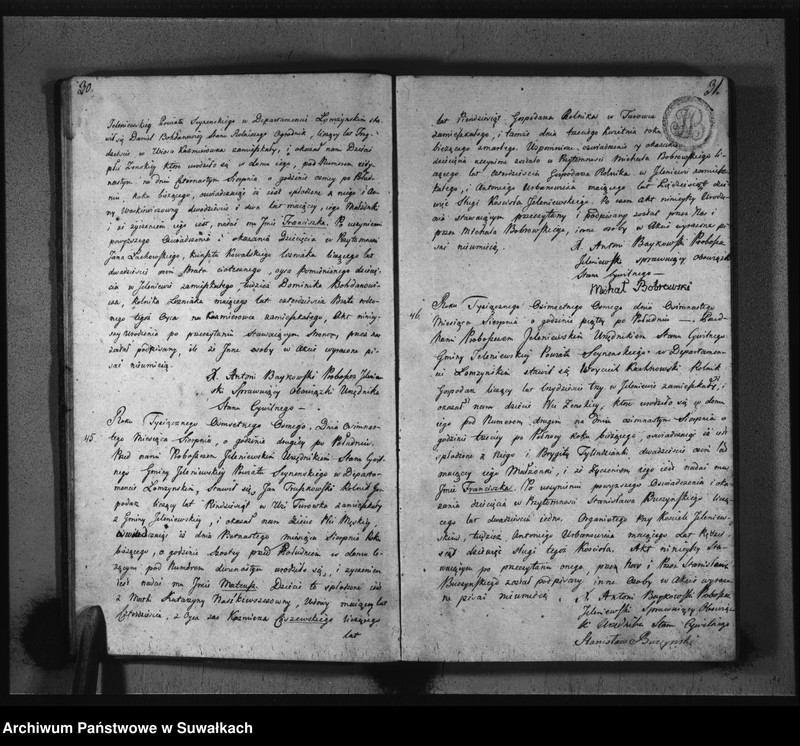 30.
Jeleniewskiej Powiatu Seynenskiego w Departamencie Łomżyńskim sta-
wił się Daniel Bohdanowicz Stanu Rolniczego Ogrodnik, liczący lat
w Wiosce Kazimierowce zamieszkały, i okazał nam Dziecie
płci Zenskiey które urodziło się w domu iego, pod Numerem
na dniu Czternastym Sierpnia o godzinie osmey po Połud-
niu, Roku bieżącego, oswiadczaiąc iż iest spłodzone z niego i An-
ny dwadzieścia i dwa lat maiącey, iego Małżonki
i że życzeniem iego iest, nadać mu Jmie Franciszka. Po uczynieniu
powyższego Oswiadczenia i okazania Dziecięcia w Przytomnosci
Jana liczącego lat
dwadzieścia osm Brata ciotecznego, oyca Pomienionego dziecię-
cia w Jeleniewie zamieszkałego tudzież Dominika Bohdanowi-
cza, Rolnika maiącego lat czterdzieścia Brata
tegoż Oyca na Kazimierowce zamieszkałego, Akt niniey-
szy Urodzenia po przeczytaniu Stawaiącym Stronom, przez nas
został podpisany, iż że Jnne osoby w Akcie wyrażone pi-
sać nieumieią.
X. Antoni Baykowski Proboszcz Jelenie-
wski Sprawuiący Obowiązki Urzędnika
Stanu Cywilnego –
45.
Roku Tysiącznego Osmsetnego Osmego. Dnia Osmnas-
tego Miesiąca Sierpnia, o godzinie drugiey po Południu.
Przed nami Proboszczem Jeleniewskim Urzędnikiem Stanu Cywil-
nego Gminy Jeleniewskiey Powiatu Seynenskiego w Departa-
mencie Łomżynskim, Stawił się Jan Rolnik Go-
podarz liczący lat Pięćdziesiąt w Wsi Turowka zamieszkały
z Gminy Jeleniewskiey, i okazał nam dziecie Płci Męskiey,
oswiadczaiąc iż dnia miesiąca Sierpnia Roku
bieżącego, o godzinie Szostey przed Południem w domu le-
żącym pod Numerem dwunastym urodziło się, i życzeniem
iest nadać mu Jmie Mateusz. Dziecie to spłodzone iest
z Matki Katarzyny Wdowy maiącey lat
Czterdzieście, z Oyca zas Kazmierza liczącego
lat
31.
lat Pięćdziesiąt Gospodarza Rolnika w Turowce
zamieszkałego, i tamże dnia Kwietnia roku
bieżącego zmarłego. Wspomnione oswiadczenie i okazanie
dziecięcia uczynione zostało w Przytomnosci Michała Bobrowskiego li-
czącego lat czterdzieście Gospodarza Rolnika w Jeleniewie zamieszka-
łego, i Antoniego Urbanowicza maiącego lat
Sługi Kościoła Jeleniewskiego. Po czem Akt ninieyszy Urodze-
nia stawaiącym przeczytany i podpisany został przez Nas i
przez Michała Bobrowskiego, inne osoby w Akcie wyrażone pi-
sać nieumieią.
X. Antoni Baykowski Proboszcz
Jeleniewski sprawuiący Obowiązki
Stanu Cywilnego –
Michał Bobrowski
46.
Roku Tysiącznego Osmsetnego Osmego dnia Osmnastego
Miesiąca Sierpnia o godzinie piątey po Południu – Przed
Nami Proboszczem Jeleniewskim Urzędnikiem Stanu Cywilnego
Gminy Jeleniewskiey Powiatu Seynenskiego w Departamen-
cie Łomżynskim stawił się Woyciech Rolnik
Gospodarz liczący lat trzydzieści trzy w Jeleniewie zamieszkały, i
okazał nam dziecie Płci Zenskiey, które urodziło się w domu
iego pod Numerem drugim na Dniu osmnastym Sierpnia o
godzinie trzeciey po Północy roku bieżącego, oswiadczaiąc iż iest
spłodzone z Niego i Brygitty dwadzieście osm lat
maiącey iego Małżonki, i że życzeniem iego iest nadać mu
Jmie Franciszka. Po uczynieniu powyższego Oswiadczenia i oka-
zania dziecięcia w Przytomnosci Stanisława Buczynskiego licz-
cego lat dwadzieścia ieden, Organisty przy Kościele Jeleniew-
skim, tudzież Antoniego Urbanowicza maiącego lat
sługi tegoż Kościoła. Akt ninieyszy Sta-
waiącym po przeczytaniu onego, przez Nas i Przez Stanisława
Buczynskiego został podpisany, inne Osoby w Akcie wyrażo-
ne pisać nieumieią
X Antoni Baykowski Proboszcz
Jeleniewski Sprawuiący Obowiąz-
ki Urzędnika Stanu Cywilnego
Stanisław Buczynski
Archiwum Państwowe w Suwałkach